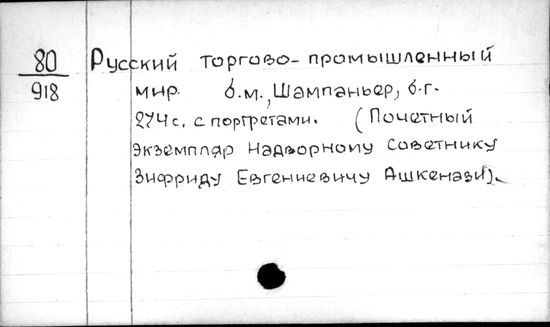 80 Русский торгово-промышленный
918 мир. б.м., Шампаньер, б.г.
274с. с портретами. (Почетный
экземпляр Надворному Советнику
Зифриду Евгениевичу Ашкенази).